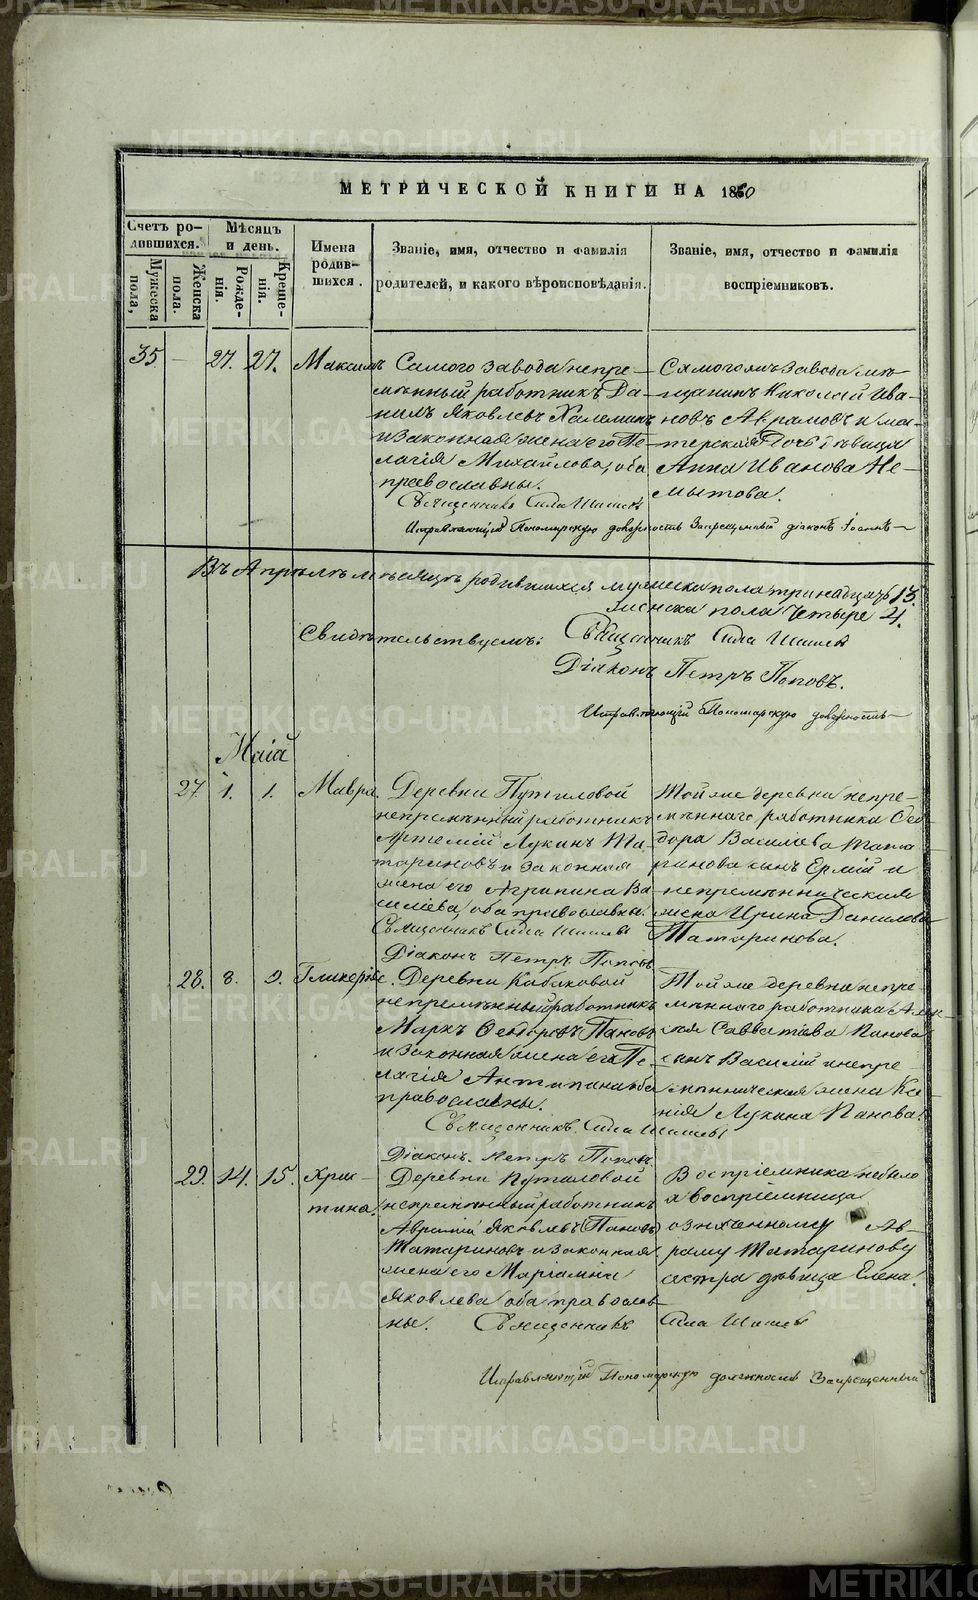 МЕТРИЧЕСКОЙ КНИГИ НА 1860
Счетъ ро-
дившихся.
Мѣсяцъ
и день.
Мужеска
пола,
Женска
пола.
Рожде-
нія.
Креще-
нія.
Имена
родив-
шихся.
Званіе, имя, отчество и фамилія
родителей, и какого вѣроисповѣданія.
Званіе, имя, отчество и фамилія
воспріемниковъ.
35 — 27. 27. Максимъ
Самого завода непре-
мѣнный работникъ Да-
нилъ Яковлевъ
и законная жена его Пе-
лагія Михайлова, оба
православны.
Священникъ Сила Шишевъ
Самого завода мѣ-
щанинъ Николай Ива-
новъ Аврамовъ и ма-
терская дочь дѣвица
Анна Иванова Не-
мытова.
Исправляющій Пономарскую должность Запрещенный діаконъ Іоаннъ
Въ Апрѣлѣ мѣсяцѣ родившихся мужеска пола тринадцать 13.
женска пола Четыре 4.
Свидѣтельствуемъ: Священникъ Сила Шишевъ
Діаконъ Петръ Поповъ.
Исправляющій Пономарскую должность
Маій
27. 1. 1. Мавра.
Деревни Путиловой
непремѣнный работникъ
Артемій Лукинъ Та-
тариновъ и законная
жена его Агрипина Ва-
силіева, оба православны.
Священникъ Сила Шишевъ
Діаконъ Петръ Поповъ
Той же деревни непре-
мѣннаго работника Ѳео-
дора Василіева Тата-
ринова сынъ Ермій и
непремѣнническая
жена Ирина Данилова
Татаринова.
28. 8. 9. Гликерія.
Деревни Кабаковой
непремѣнный работникъ
Маркъ Ѳеодоровъ Пановъ
и законная жена его Пе-
лагія Антипина оба
православны.
Священникъ Сила Шишевъ
Діаконъ Петръ Поповъ
Той же деревни непре-
мѣннаго работника Алек-
сѣя Савватіева Панова
сынъ Василій и непре-
мѣнническая жена Ксе-
нія Лукина Панова.
29. 14. 15. Хрис-
тина.
Деревни Путиловой
непремѣнный работникъ
Аврамій Яковлевъ (Пановъ)
Татариновъ и законная
жена его Маріамна
Яковлева оба православ-
ны. Священникъ Сила Шишевъ
Воспріемника не было
а воспріемница
означенному Ав-
раму Татаринову
сестра дѣвица Елена.
Исправляющій Пономарскую должность Запрещенный
METRIKI.GASO-URAL.RU